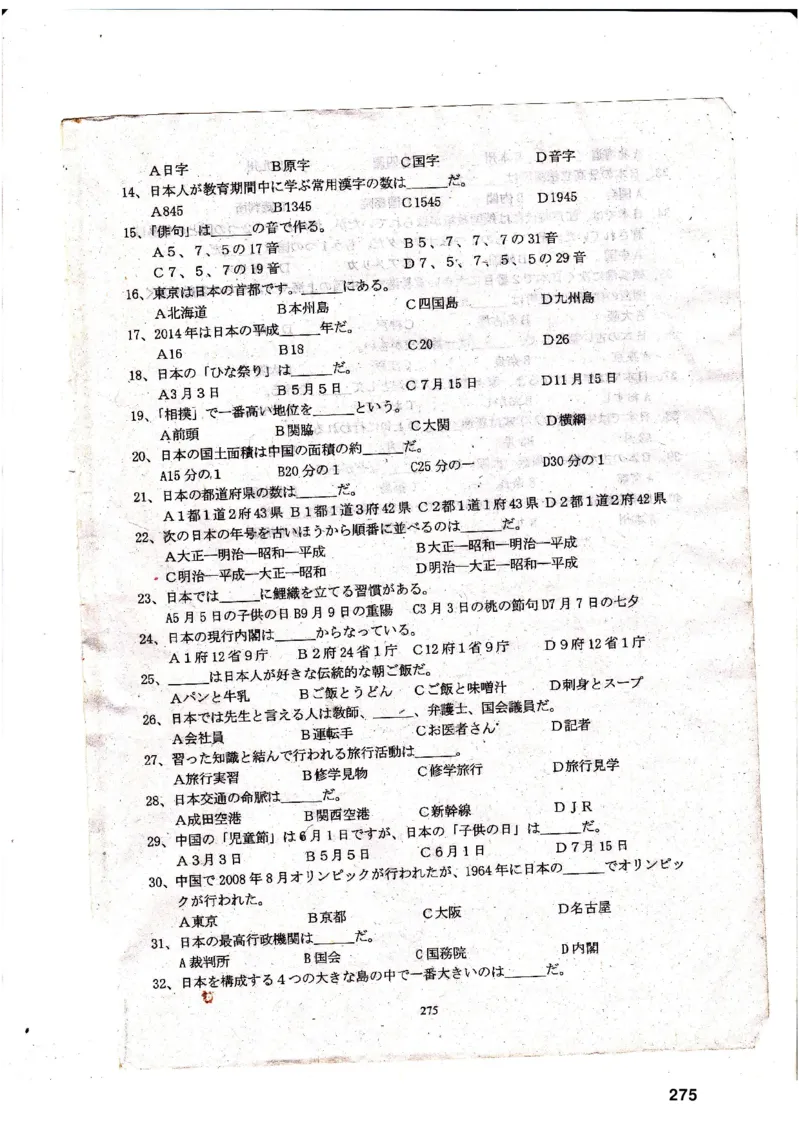 A日字 B原字 C国字 D音字
14、日本人が教育期間中に学ぶ常用漢字の数は_____だ。
A845 B1345 C1545 D1945
15、「俳句」は_____の音で作る。
A5、7、5の17音 B5、7、7、7の31音
C7、5、7の19音 D7、5、7、5、5の29音
16、東京は日本の首都です。_____にある。
A北海道 B本州島 C四国島 D九州島
17、2014年は日本の平成_____年だ。
A16 B18 C20 D26
18、日本の「ひな祭り」は_____だ。
A3月3日 B5月5日 C7月15日 D11月15日
19、「相撲」で一番高い地位を_____という。
A前頭 B関脇 C大関 D横綱
20、日本の国土面積は中国の面積の約_____だ。
A15分の1 B20分の1 C25分の一 D30分の1
21、日本の都道府県の数は_____だ。
A1都1道2府43県 B1都1道3府42県 C2都1道1府43県 D2都1道2府42県
22、次の日本の年号を古いほうから順番に並べるのは_____だ。
A大正—明治—昭和—平成 B大正—昭和—明治—平成
C明治—平成—大正—昭和 D明治—大正—昭和—平成
23、日本では_____に鯉幟を立てる習慣がある。
A5月5日の子供の日 B9月9日の重陽 C3月3日の桃の節句 D7月7日の七夕
24、日本の現行内閣は_____からなっている。
A1府12省9庁 B2府24省1庁 C12府1省9庁 D9府12省1庁
25、_____は日本人が好きな伝統的な朝ご飯だ。
Aパンと牛乳 Bご飯とうどん Cご飯と味噌汁 D刺身とスープ
26、日本では先生と言える人は教師、_____、弁護士、国会議員だ。
A会社員 B運転手 Cお医者さん D記者
27、習った知識と結んで行われる旅行活動は_____。
A旅行実習 B修学見物 C修学旅行 D旅行見学
28、日本交通の命脈は_____だ。
A成田空港 B関西空港 C新幹線 DJR
29、中国の「児童節」は6月1日ですが、日本の「子供の日」は_____だ。
A3月3日 B5月5日 C6月1日 D7月15日
30、中国で2008年8月オリンピックが行われたが、1964年に日本の_____でオリンピッ
クが行われた。
A東京 B京都 C大阪 D名古屋
31、日本の最高行政機関は_____だ。
A裁判所 B国会 C国務院 D内閣
32、日本を構成する4つの大きな島の中で一番大きいのは_____だ。
275
275